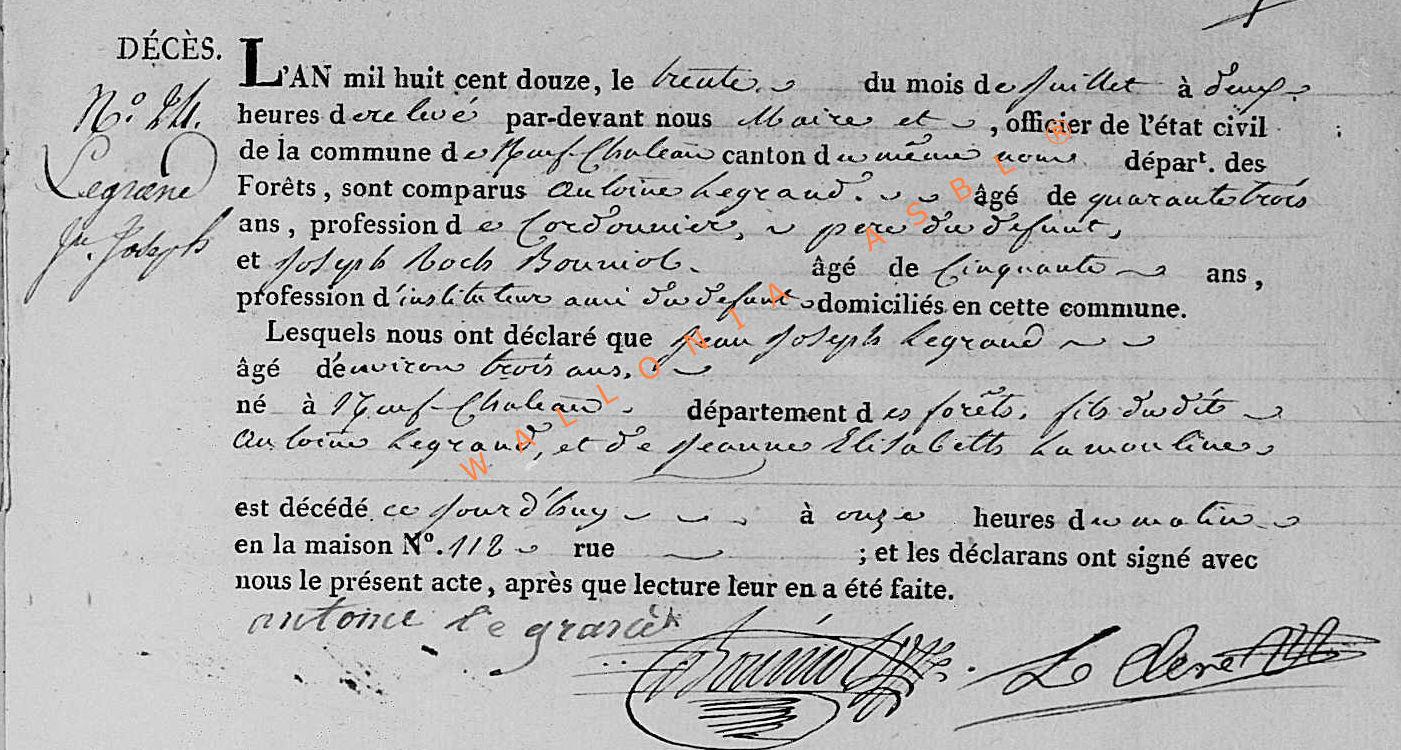 DÉCÈS.
N.° 24.
Legrand
Jn. Joseph
L'AN mil huit cent douze, le trente du mois de Juillet à deux
heures de relevé par-devant nous Maire et, officier de l'état civil ;
de la commune de Neuf-Chateau canton du même nom départ. des
Forêts, sont comparus Antoine Legrand. âgé de quarante trois
ans, profession de Cordonnier, pere du defunt,
et Joseph Roch Bourniol. âgé de Cinquante ans,
profession d'instituteur ami du defunt domiciliés en cette commune.
Lesquels nous ont déclaré que Jean Joseph Legrand
âgé d'environ trois ans,
né à Neuf-Chateau. département des forêts. fils du dit
Antoine Legrand, et de Jeanne Elisabeth Lamouline
est décédé ce jourd'huy à onze heures du matin
en la maison N°. 112 rue ; et les déclarans ont signé avec
nous le présent acte, après que lecture leur en a été faite.
antoine le grand
WALLONIA ASBL ®